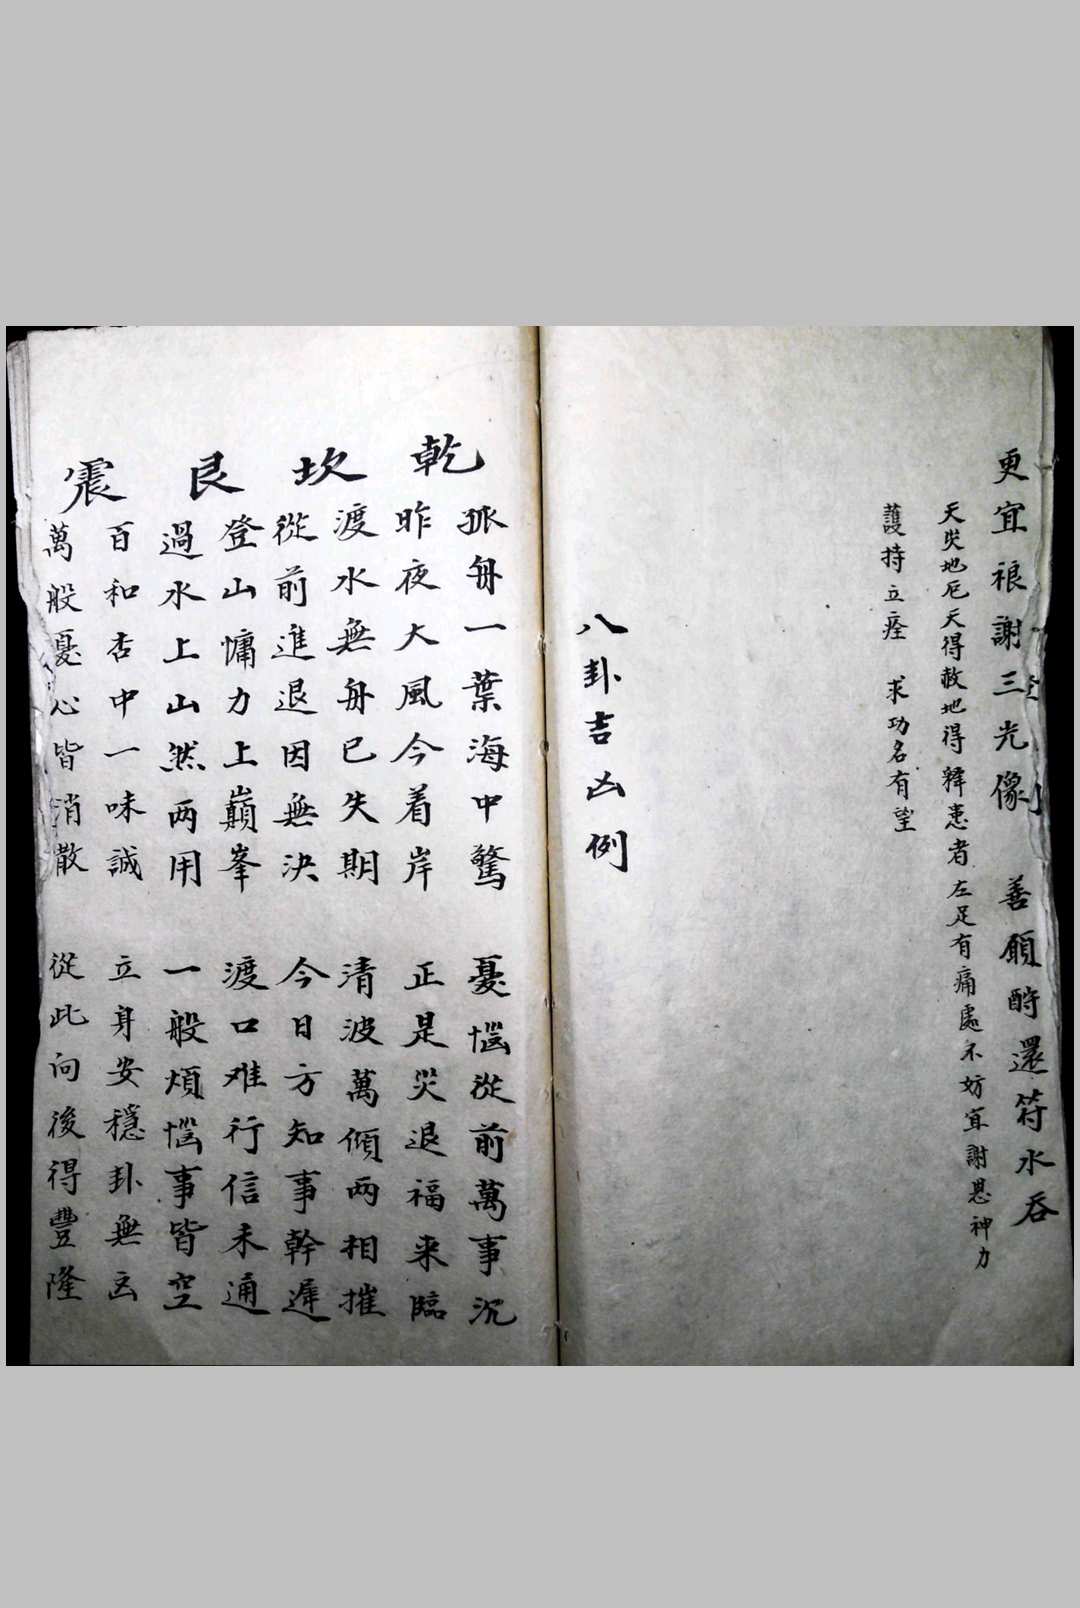 更宜禳謝三光像 善願酧還符水吞
天灾地厄天得救地得釋患者左足有痛處不妨宜謝恩神力
護持立痊 求功名有望
八卦吉凶例
乾
孤舟一葉海中驚 憂惱從前萬事沉
昨夜大風今着岸 正是災退福来臨
坎
渡水無舟已失期 清波萬傾两相摧
從前進退因無決 今日方知事幹遲
艮
登山慵力上巔峯 渡口难行信未通
過水上山然两用 一般煩惱事皆空
震
百和杏中一味誠 立身安穩卦無凶
萬般憂心皆消散 從此向後得豐隆